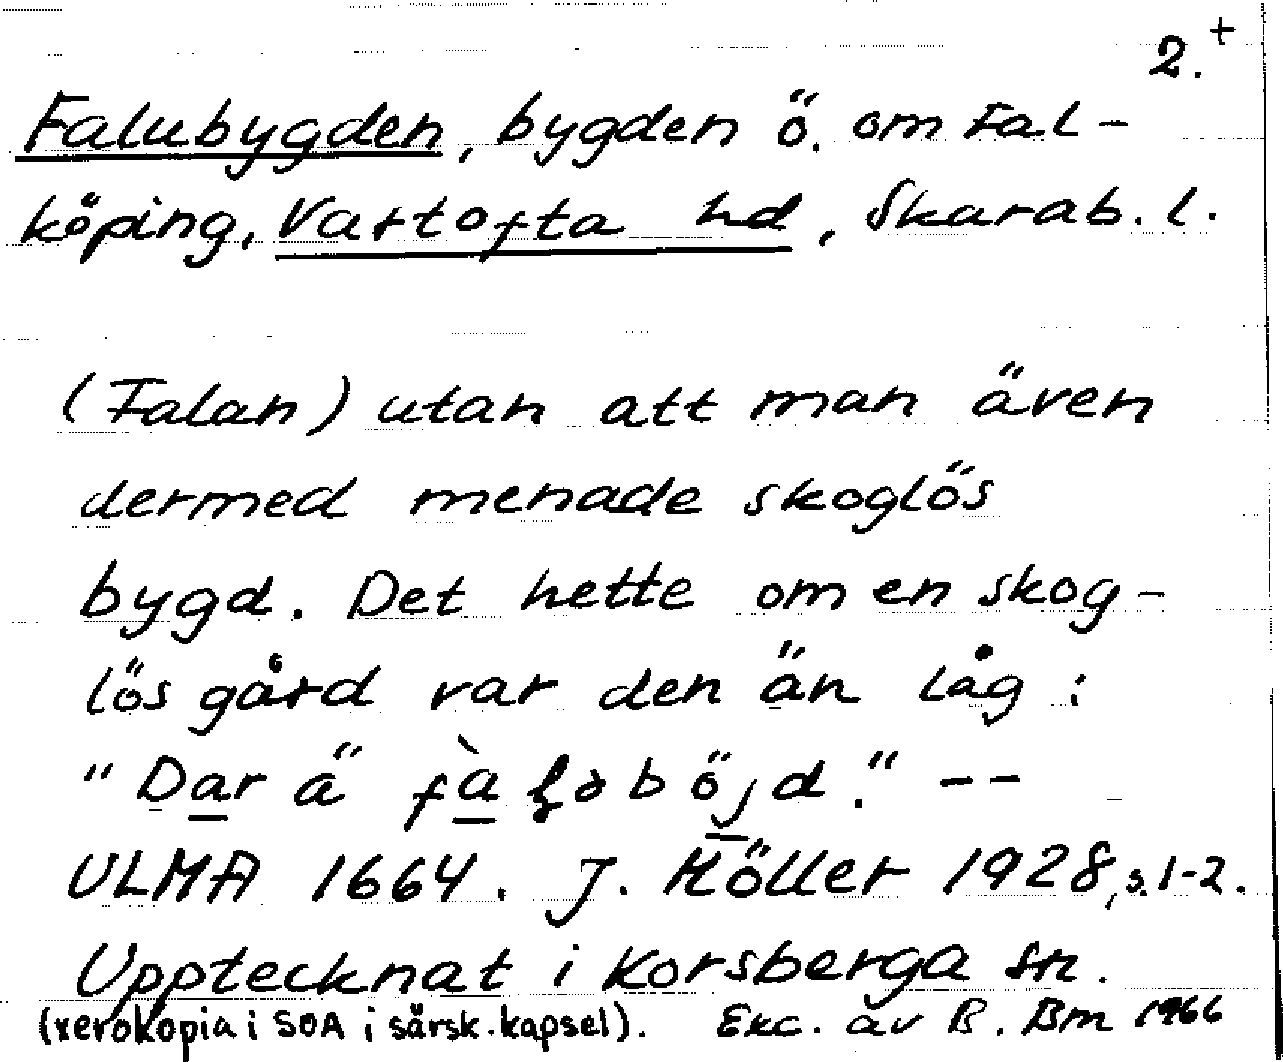 2.+
Falubygden, bygden ö. om Fal-
köping, Vartofta hd, Skarab. l.
(Falan) utan att man även
dermed menade skoglös
bygd. Det hette om en skog-
lös gård var den än låg:
"Dar ä faləböjd." --
ULMA 1664. J. Möller 1928, s. 1-2.
Upptecknat i Korsberga sn.
(xerokopia i SOA i särsk. kapsel). Exc. av B. Bm 1966